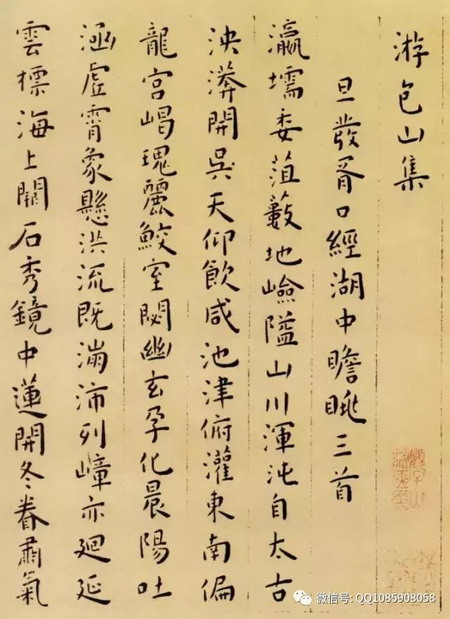 游包山集
旦發胥口經湖中瞻眺三首
瀛壖委菹藪地嶮隘山川渾沌自太古
泱漭開吳天仰飲咸池津俯灌東南偏
龍宮嵑瑰麗鮫室閟幽玄孕化晨陽吐
涵虛霄象懸洪流既滿沛列嶂亦廻延
雲標海上闕石秀鏡中蓮開冬眷肅氣
微信号: QQ1085908058